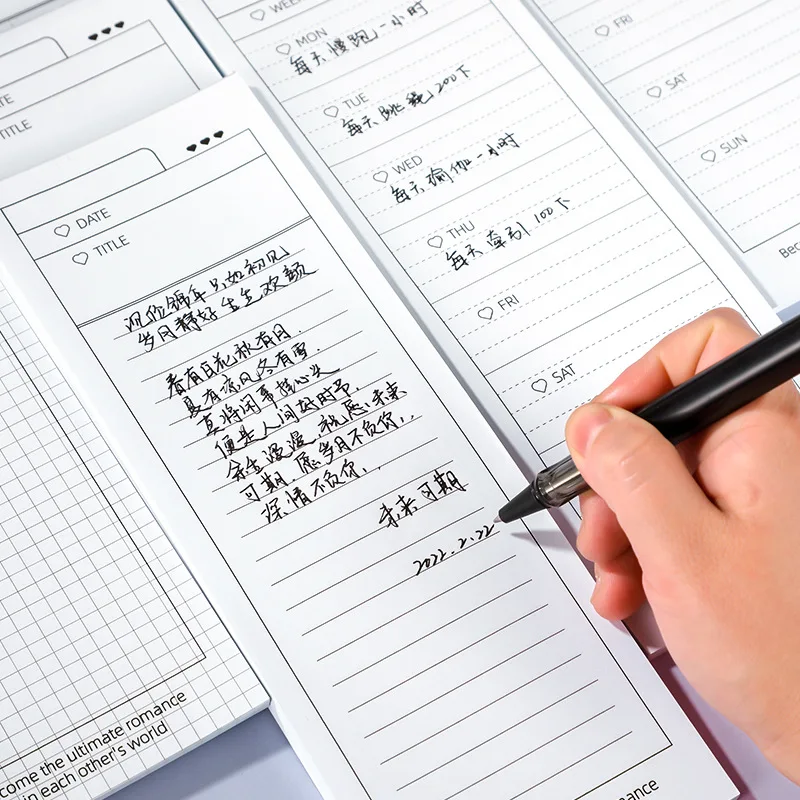 TITLE
come the ultimate romance
in each other's world
DATE
TITLE
祝你锦年 只如初见
岁月静好 生生欢颜
春有百花秋有月,
夏有凉风冬有雪,
莫将闲事挂心头
便是人间好时节,
余生漫漫,就愿,未来
可期,愿岁月不负你,
深情不负你,
未来可期
2022.2.22
mance
MON
每天慢跑一小时
TUE
每天跳绳200下
WED
每天瑜伽一小时
THU
每天牵引100下
FRI
SAT
FRI
SAT
SUN